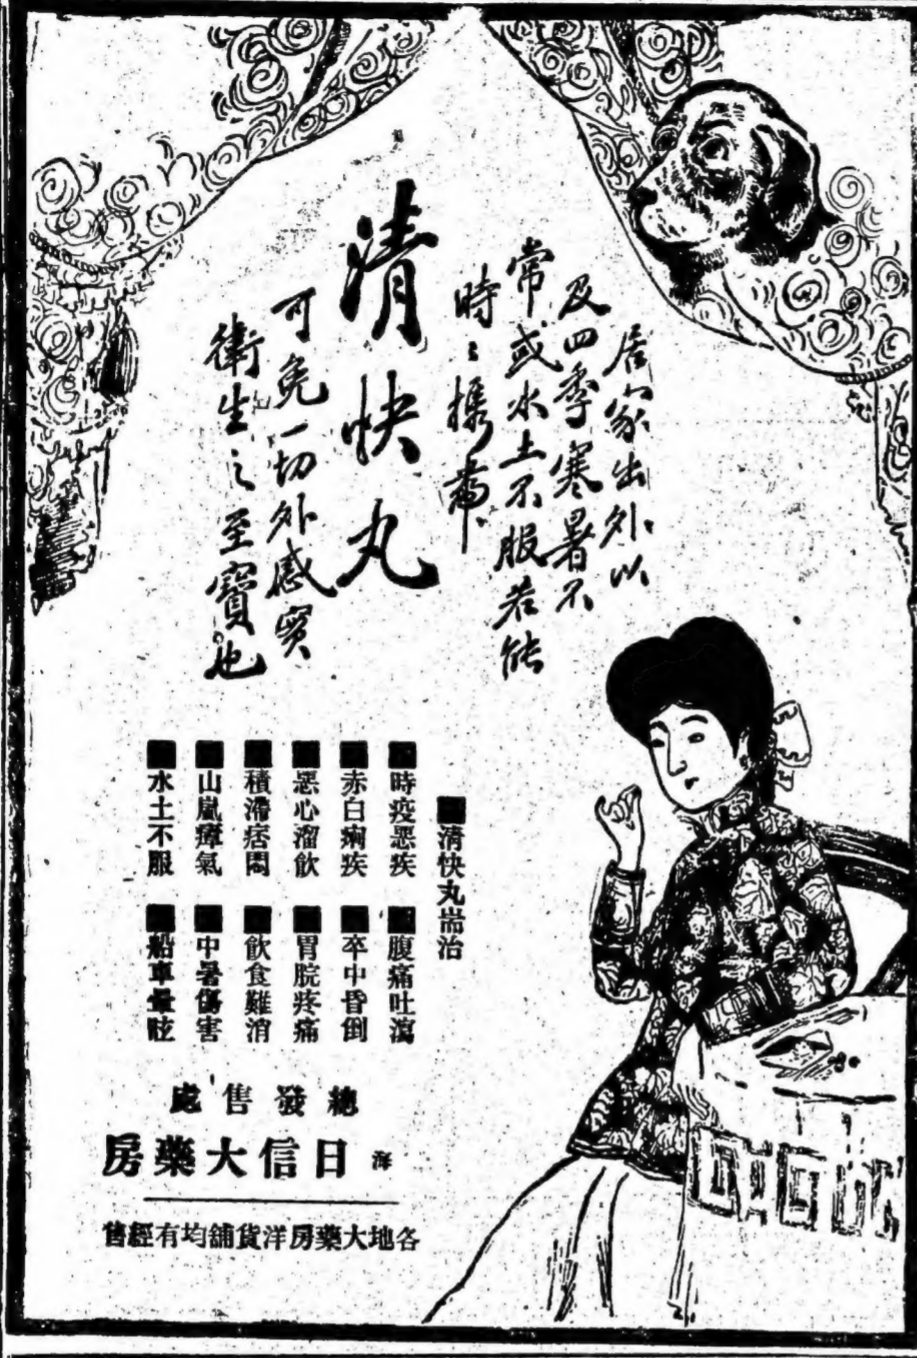 居家出外以
及四季寒暑不
常或水土不服若能
時〻擕帶
清快丸
可免一切外感實
衛生之至寶也
清快丸耑治
時疫惡疾
腹痛吐瀉
赤白痢疾
卒中昏倒
惡心溜飲
胃脘疼痛
積滯痞悶
飲食難消
山嵐瘴氣
中暑傷害
水土不服
船車暈眩
總發售處
海 日信大藥房
各地大藥房洋貨舖均有經售